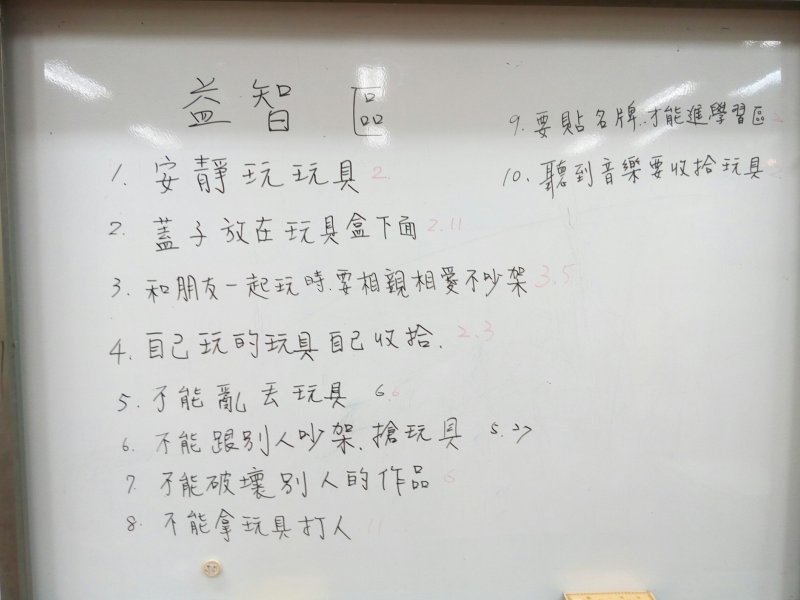 益智區
1. 安靜玩玩具 2.
2. 蓋子放在玩具盒下面 2.11
3. 和朋友一起玩時.要相親相愛不吵架 3.5
4. 自己玩的玩具自己收拾. 2.3
5. 不能亂丟玩具 6.6
6. 不能跟別人吵架、搶玩具 5.27
7. 不能破壞別人的作品 6
8. 不能拿玩具打人 11
9. 要貼名牌.才能進學習區
10. 聽到音樂要收拾玩具